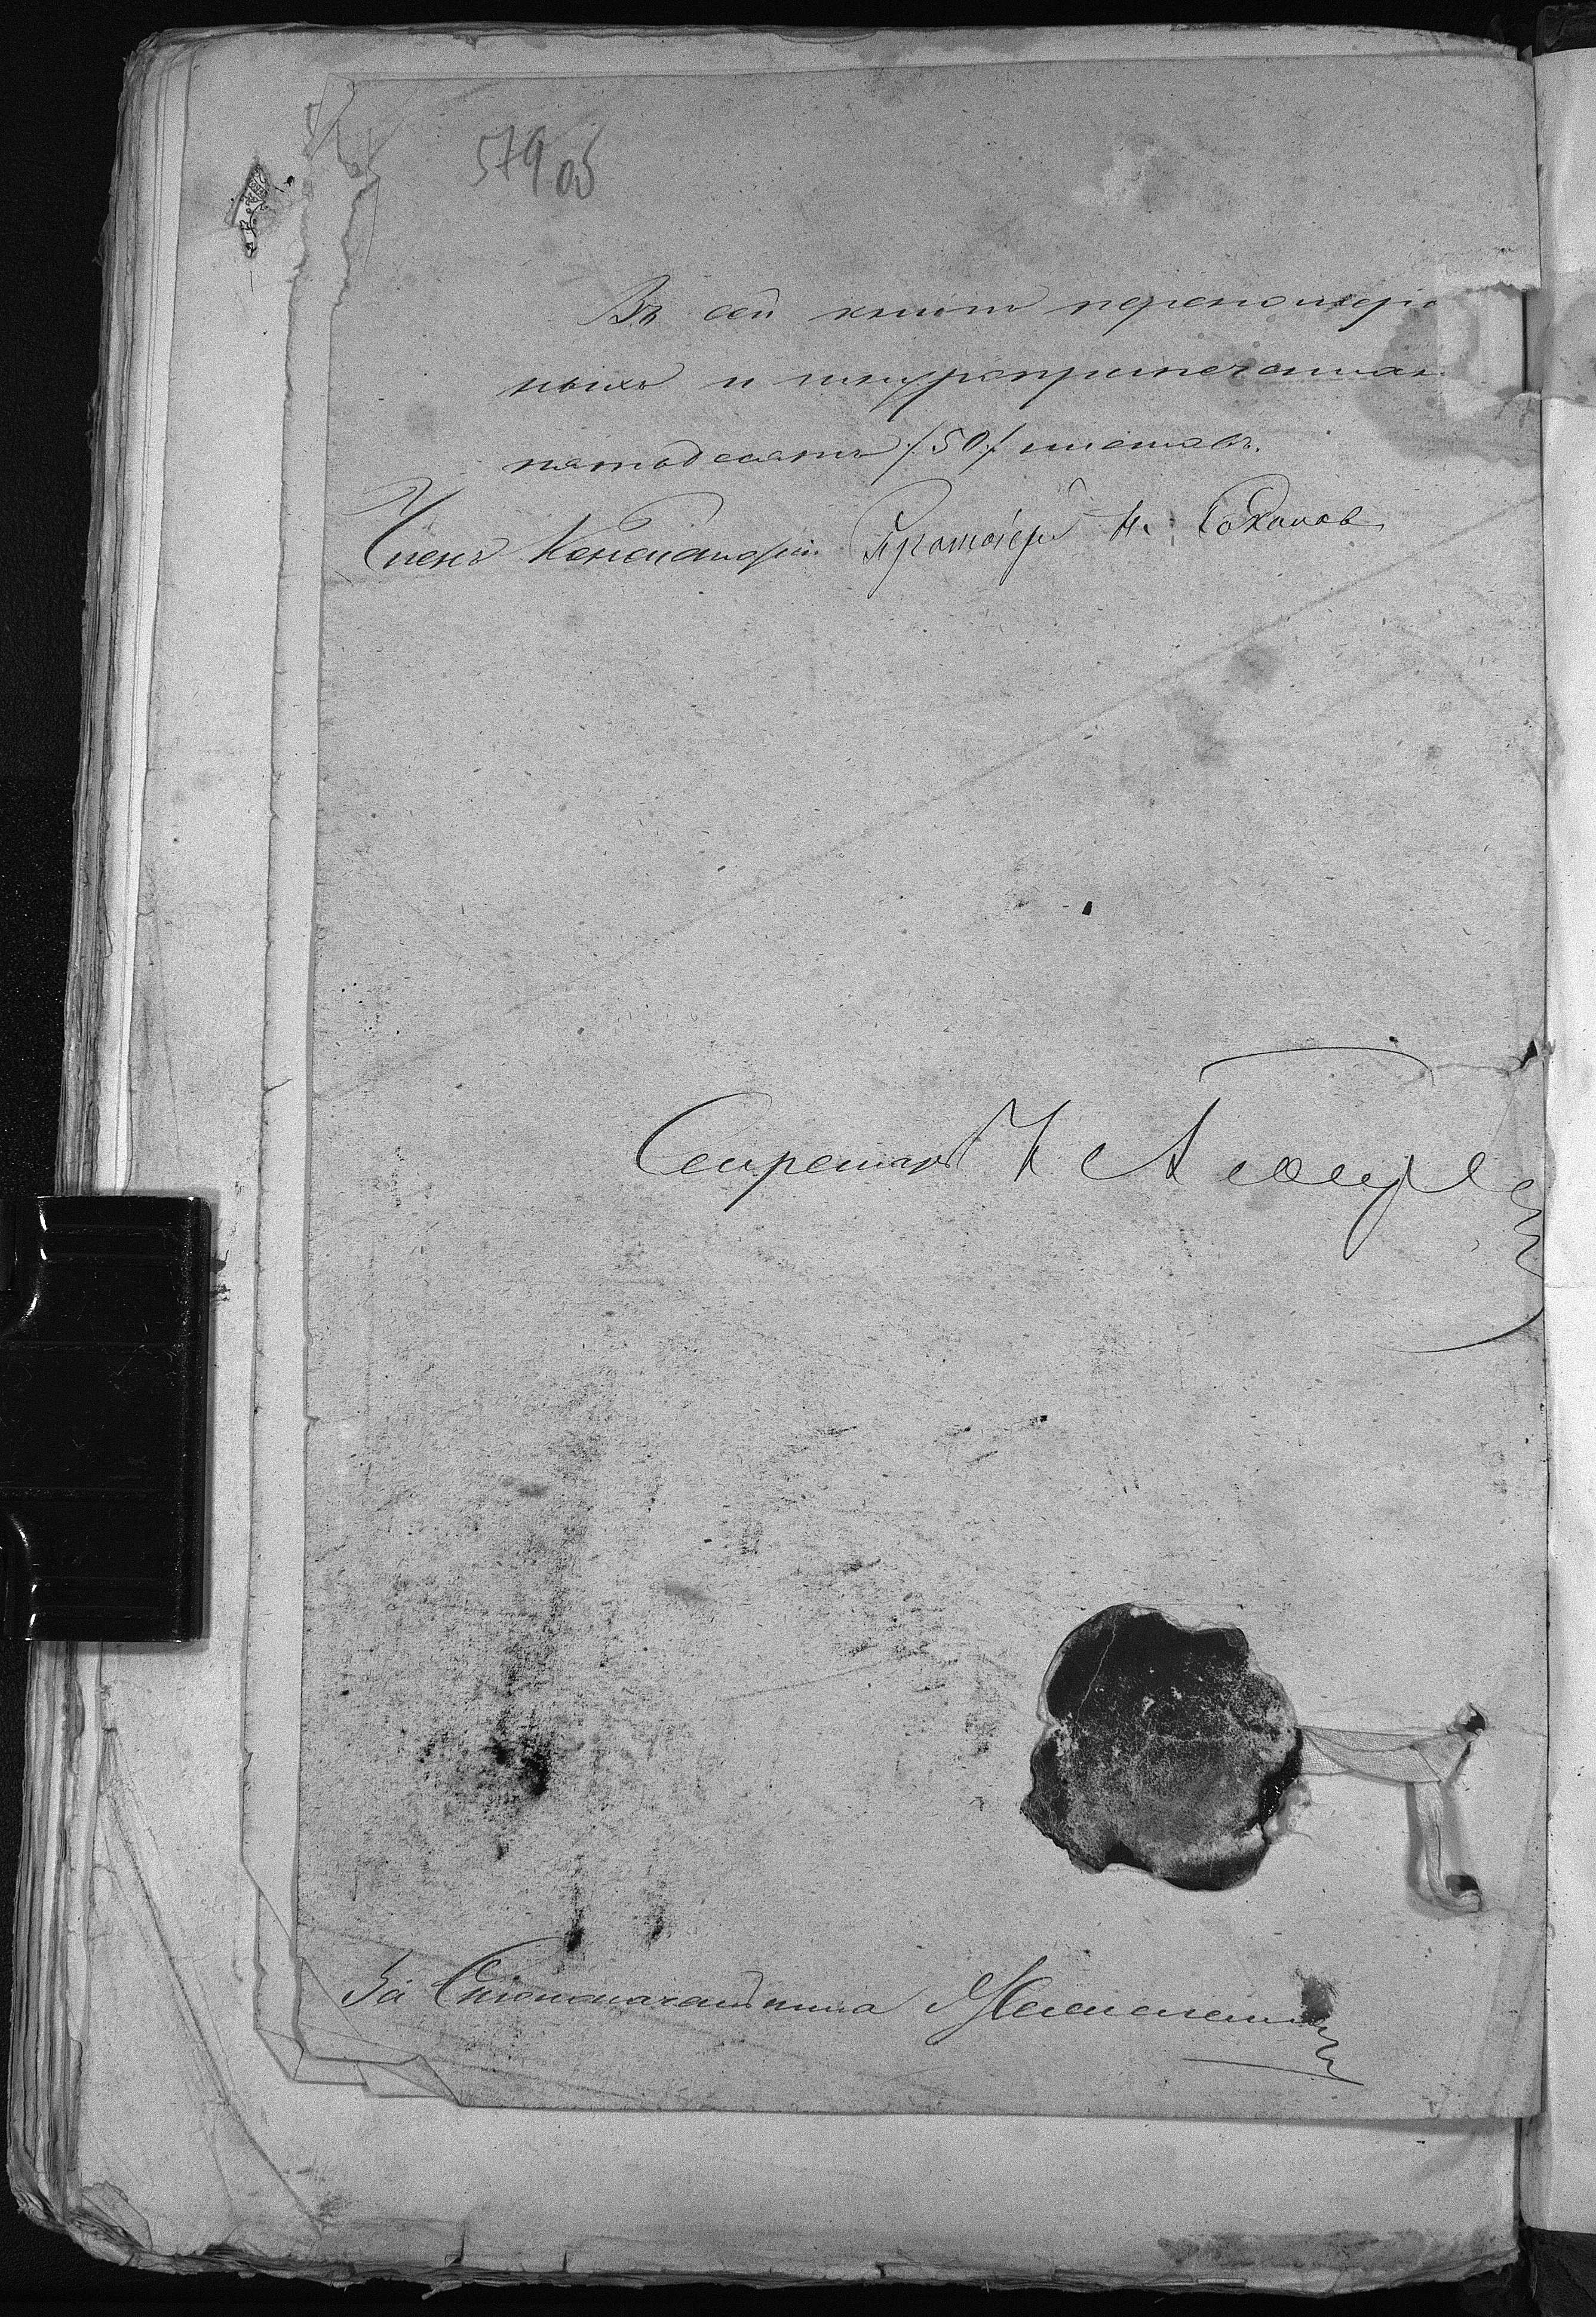 579 об
Въ сей книгѣ перенумеро
ныхъ и шнуроприпечатан
пятьдесятъ /50/ листовъ.
Членъ Консисторіи Протоіерей Н.
Секретарь Н
За Столоначальника